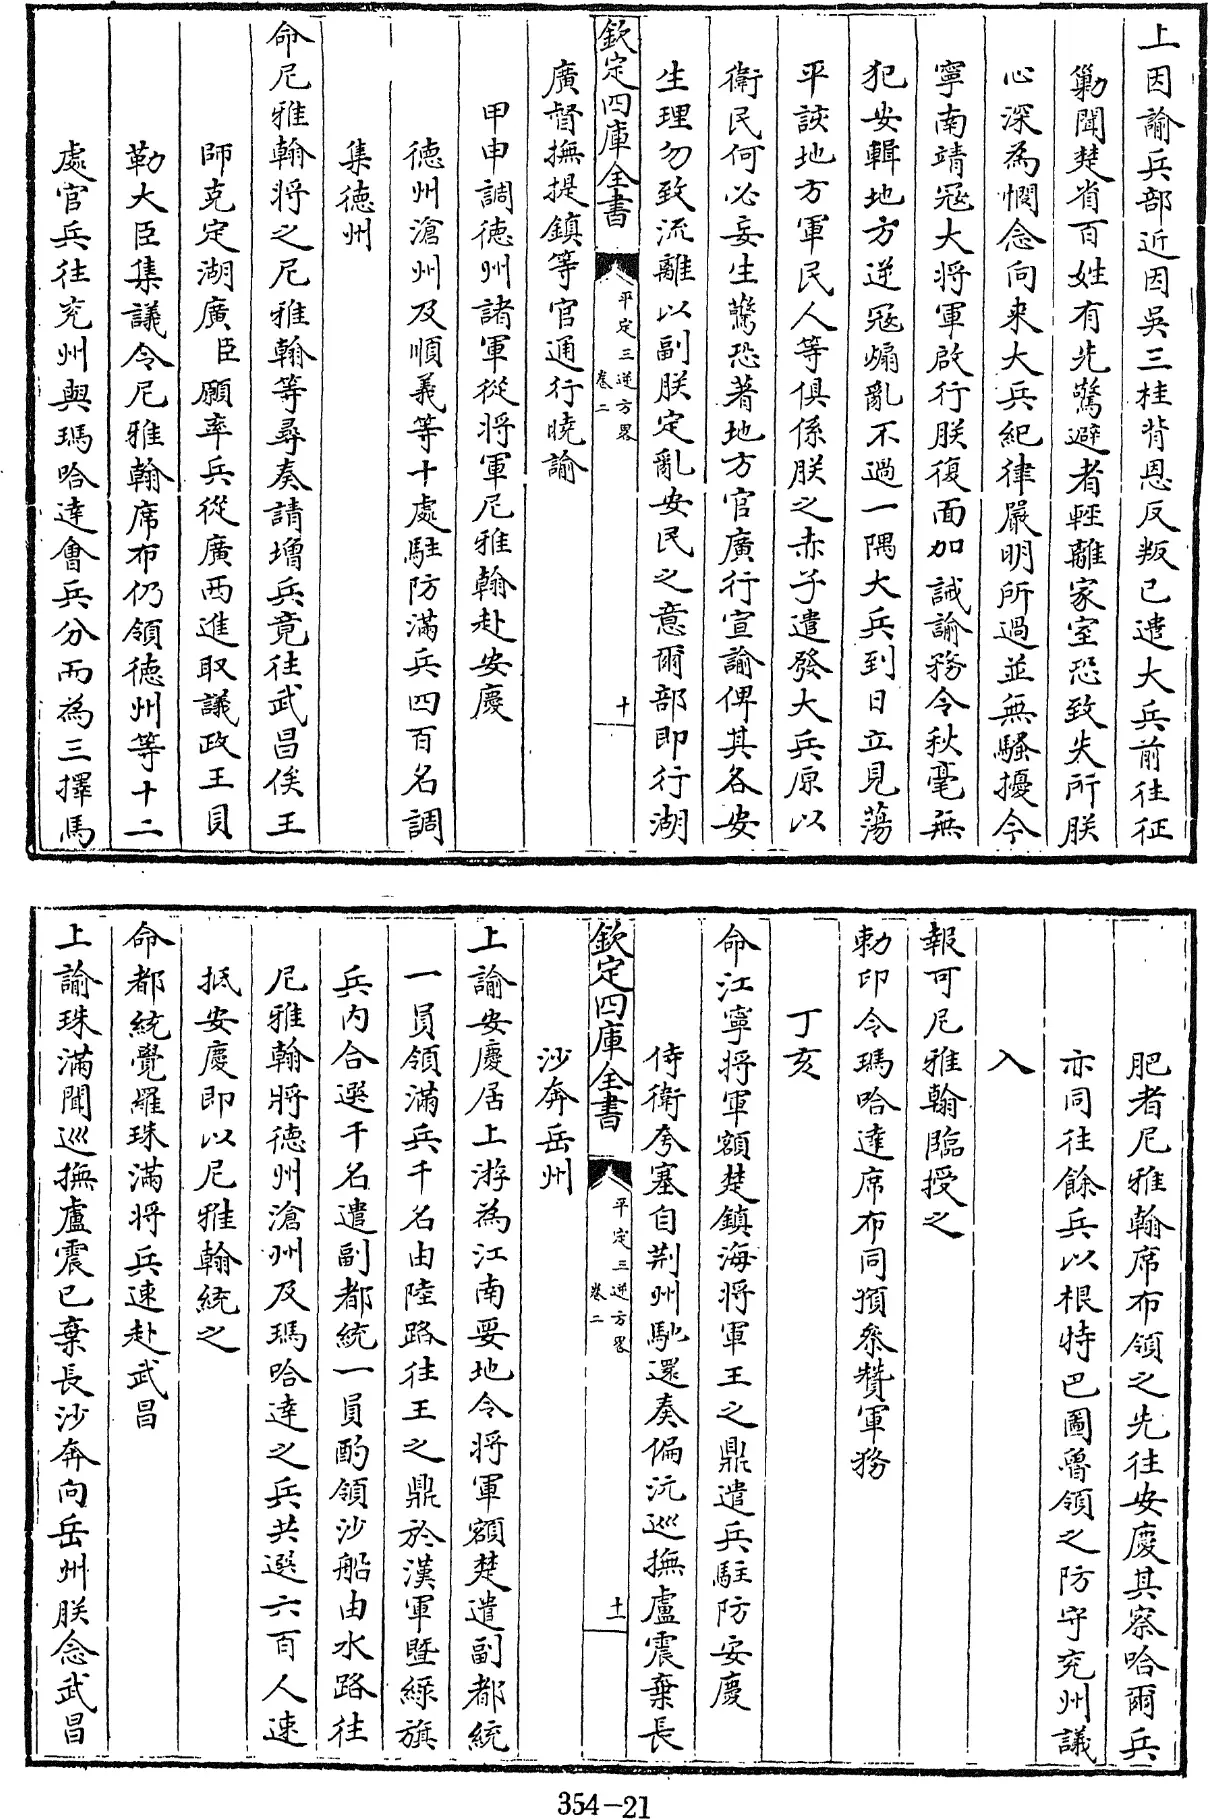 上因諭兵部近因吳三桂背恩反叛已遣大兵前往征
勦聞楚省百姓有先驚避者輕離家室恐致失所朕
心深為憫念向來大兵紀律嚴明所過並無騷擾今
寧南靖寇大將軍啟行朕復面加誡諭務令秋毫無
犯安輯地方逆寇煽亂不過一隅大兵到日立見蕩
平該地方軍民人等俱係朕之赤子遣發大兵原以
衛民何必妄生驚恐著地方官廣行宣諭俾其各安
生理勿致流離以副朕定亂安民之意爾部即行湖
欽定四庫全書
平定三逆方畧
卷二
十
廣督撫提鎮等官通行曉諭
甲申調德州諸軍從將軍尼雅翰赴安慶
德州滄州及順義等十處駐防滿兵四百名調
集德州
命尼雅翰將之尼雅翰等尋奏請增兵竟往武昌俟王
師克定湖廣臣願率兵從廣西進取議政王貝
勒大臣集議令尼雅翰席布仍領德州等十二
處官兵往兗州與瑪哈達會兵分而為三擇馬
肥者尼雅翰席布領之先往安慶其察哈爾兵
亦同往餘兵以根特巴圖魯領之防守兗州議
入
報可尼雅翰臨授之
勅印令瑪哈達席布同預叅贊軍務
丁亥
命江寧將軍額楚鎮海將軍王之鼎遣兵駐防安慶
侍衛夸塞自荆州馳還奏偏沅巡撫盧震棄長
欽定四庫全書
平定三逆方畧
卷二
十一
沙奔岳州
上諭安慶居上游為江南要地令將軍額楚遣副都統
一員領滿兵千名由陸路往王之鼎於漢軍暨綠旗
兵內合選千名遣副都統一員酌領沙船由水路往
尼雅翰將德州滄州及瑪哈達之兵共選六百人速
抵安慶即以尼雅翰統之
命都統覺羅珠滿將兵速赴武昌
上諭珠滿聞巡撫盧震已棄長沙奔向岳州朕念武昌
354-21